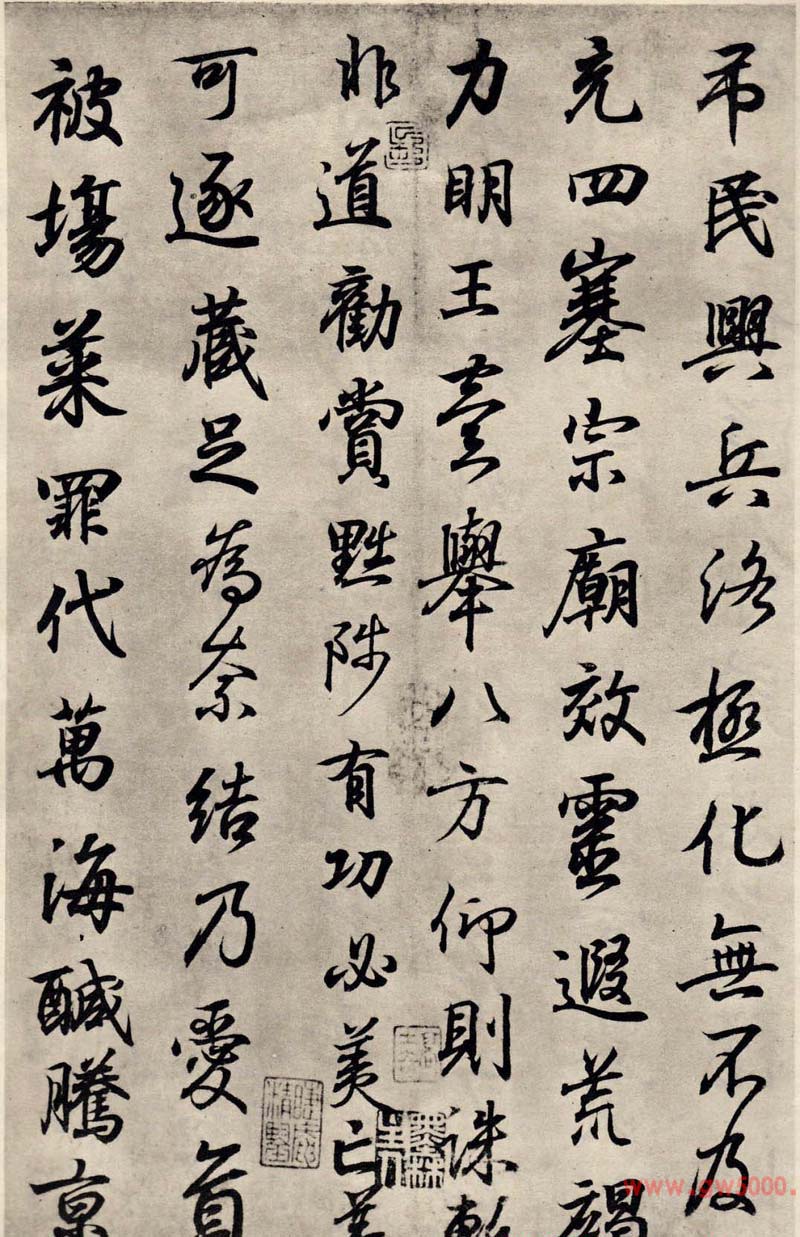 吊民興兵洛極化無不及
充四塞宗廟效靈遐荒竭
力明王舉八方仰則誅
非道勸賞黜陟有功必美亡
可逐藏足為奈結乃愛
被場菜罪代萬海鹹騰
www.gw5000.